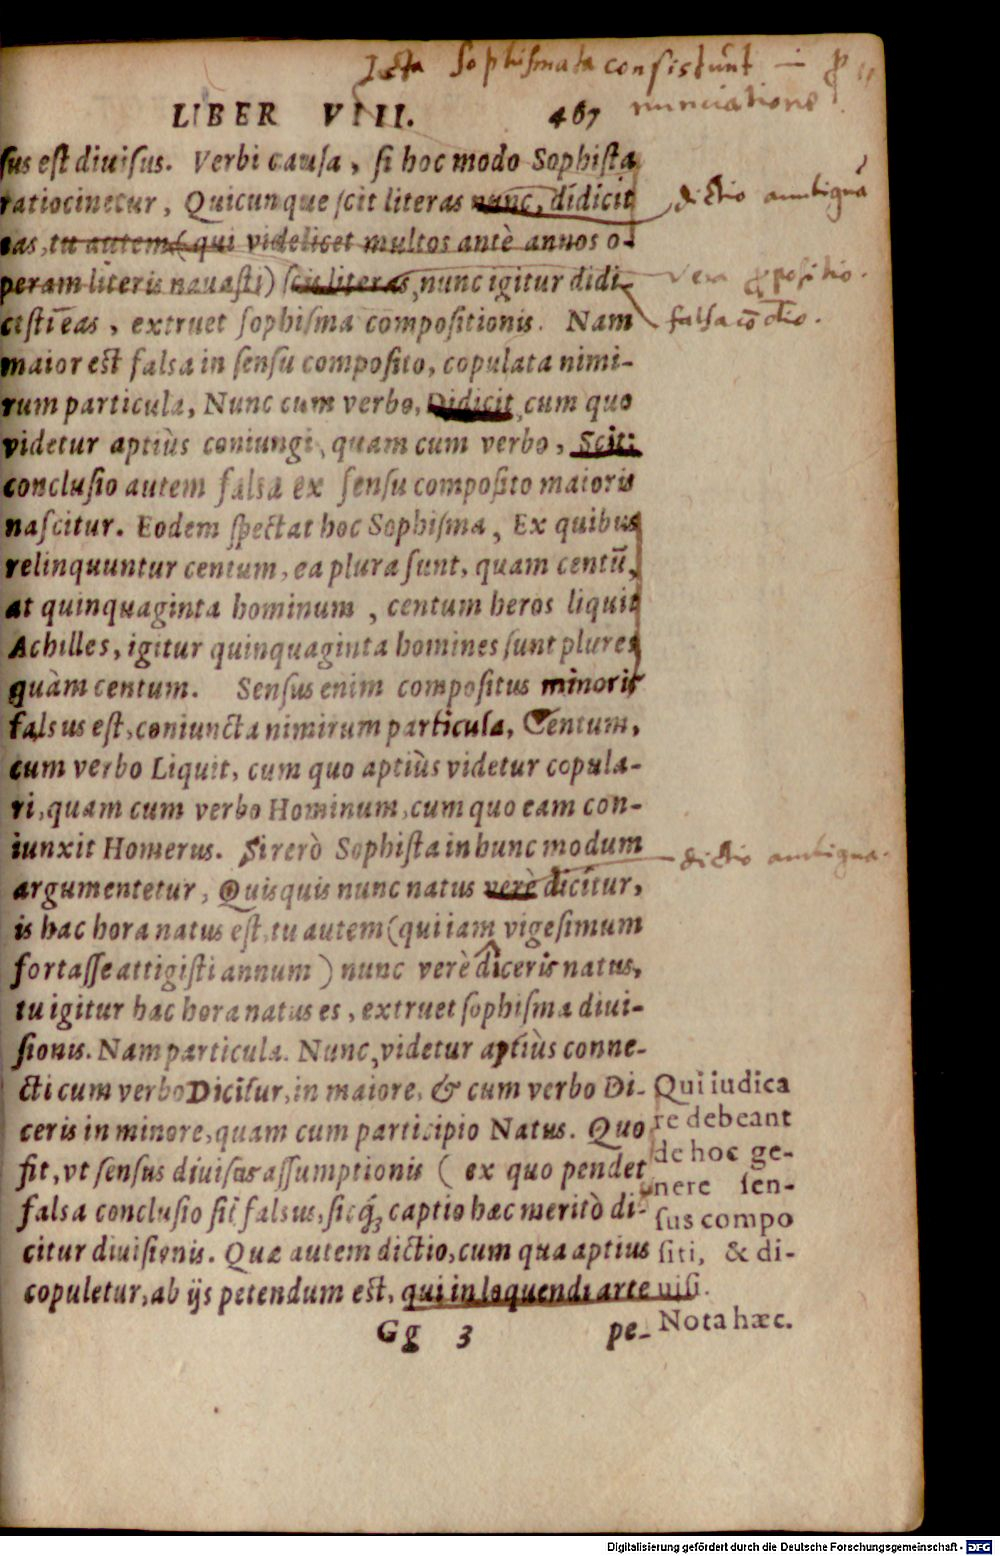 Ista Sophismata consistunt in p
nunciatione
LIBER VIII. 467
sus est diuisus. Verbi causa, si hoc modo Sophista
ratiocinetur, Quicunque scit literas nunc, didicit
eas, tu autem (qui videlicet multos antè annos o-
peram literis nauasti) scis literas, nunc igitur didi-
cisti eas, extruet sophisma compositionis. Nam
maior est falsa in sensu composito, copulata nimi-
rum particula, Nunc cum verbo, Didicit, cum quo
videtur aptiùs coniungi, quam cum verbo, Scit:
conclusio autem falsa ex sensu composito maioris
nascitur. Eodem spectat hoc Sophisma, Ex quibus
relinquuntur centum, ea plura sunt, quam centũ,
at quinquaginta hominum, centum heros liquit
Achilles, igitur quinquaginta homines sunt plures
quàm centum. Sensus enim compositus minoris
falsus est, coniuncta nimirum particula, Centum,
cum verbo Liquit, cum quo aptiùs videtur copula-
ri, quam cum verbo Hominum, cum quo eam con-
iunxit Homerus. Si rerò Sophista in hunc modum
argumentetur, Quisquis nunc natus verè dicitur,
is hac hora natus est, tu autem (qui iam vigesimum
fortasse attigisti annum) nunc verè diceris natus,
tu igitur hac hora natus es, extruet sophisma diui-
sionis. Nam particula. Nunc, videtur aptiùs conne-
cti cum verbo Dicitur, in maiore, & cum verbo Di-
ceris in minore, quam cum participio Natus. Quo
fit, vt sensus diuisus assumptionis (ex quo pendet
falsa conclusio sit falsus, sicq́; captio hæc meritò di-
citur diuisionis. Quæ autem dictio, cum qua aptius
copuletur, ab ijs petendum est, qui in loquendi arte
Gg 3 pe-
dictio ambigua
vera ꝓpositio.
falsa cōctio.
dictio ambigua.
Qui iudica
re debeant
de hoc ge-
nere sen-
sus compo
siti, & di-
uisi.
Nota hæc.
Digitalisierung gefördert durch die Deutsche Forschungsgemeinschaft - DFG